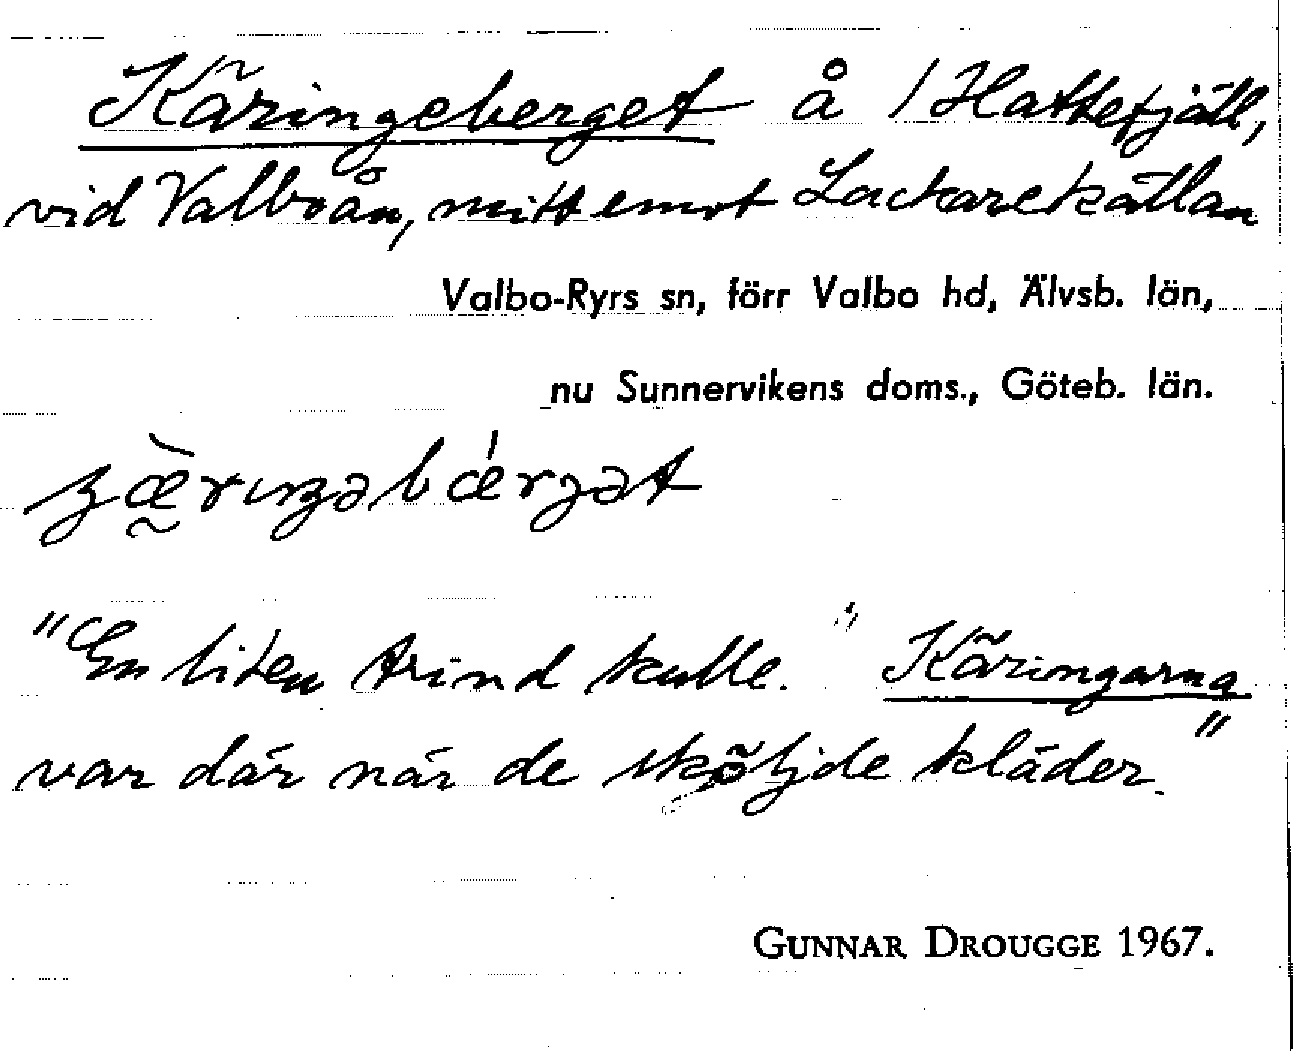 Käringeberget å 1 Hattefjäll,
vid Valboån, mitt emot Lackarekällan
Valbo-Ryrs sn, förr Valbo hd, Älvsb. län,
nu Sunnervikens doms., Göteb. län.
"En liten trind kulle." Käringarna
var där när de sköljde kläder."
GUNNAR DROUGGE 1967.